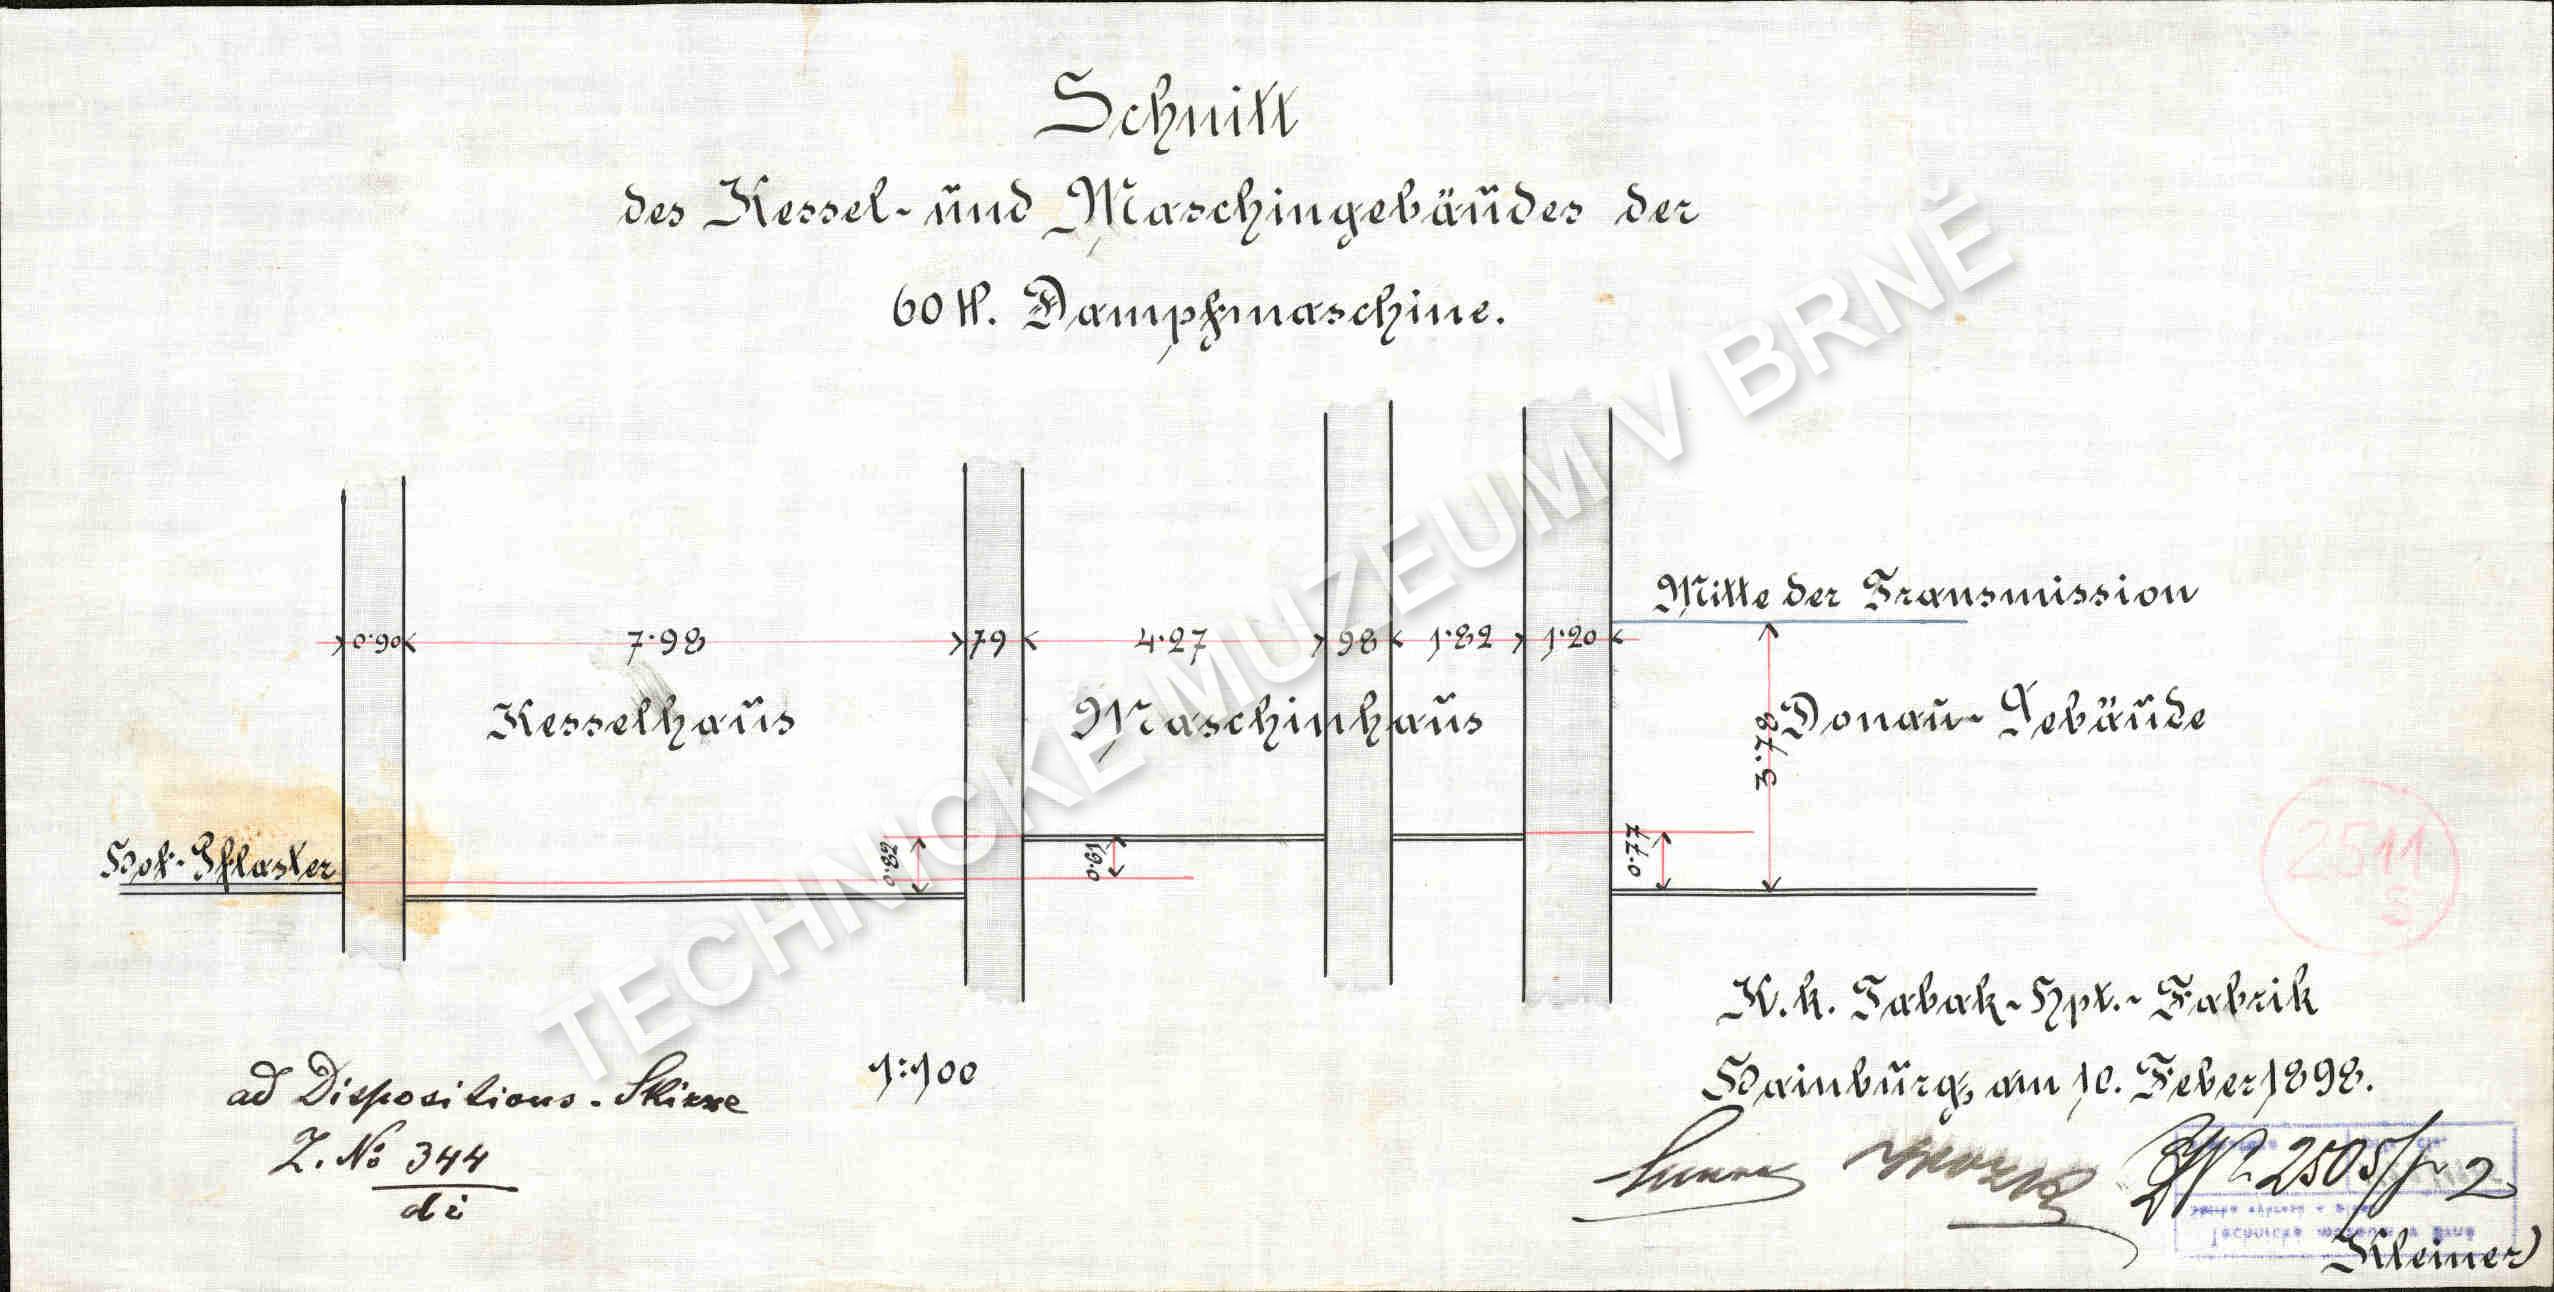 Schnitt
des Kessel- und Maschingebäudes der
60 H. Dampfmaschine.
Mitte der Transmission
0·90 7·98 79 4·27 98 1·82 1·20
3·78
Kesselhaus Maschinhaus Donau-Gebäude
Hof-Pflaster
0·82 0·61 0·77
2511
S
K.k. Tabak-Hpt.-Fabrik
Hainburg, am 10. Feber 1898.
ad Dispositions-Skizze
1:100
Z. No 344
di
2505/2
Kleiner
TECHNICKÉ MUZEUM V BRNĚ